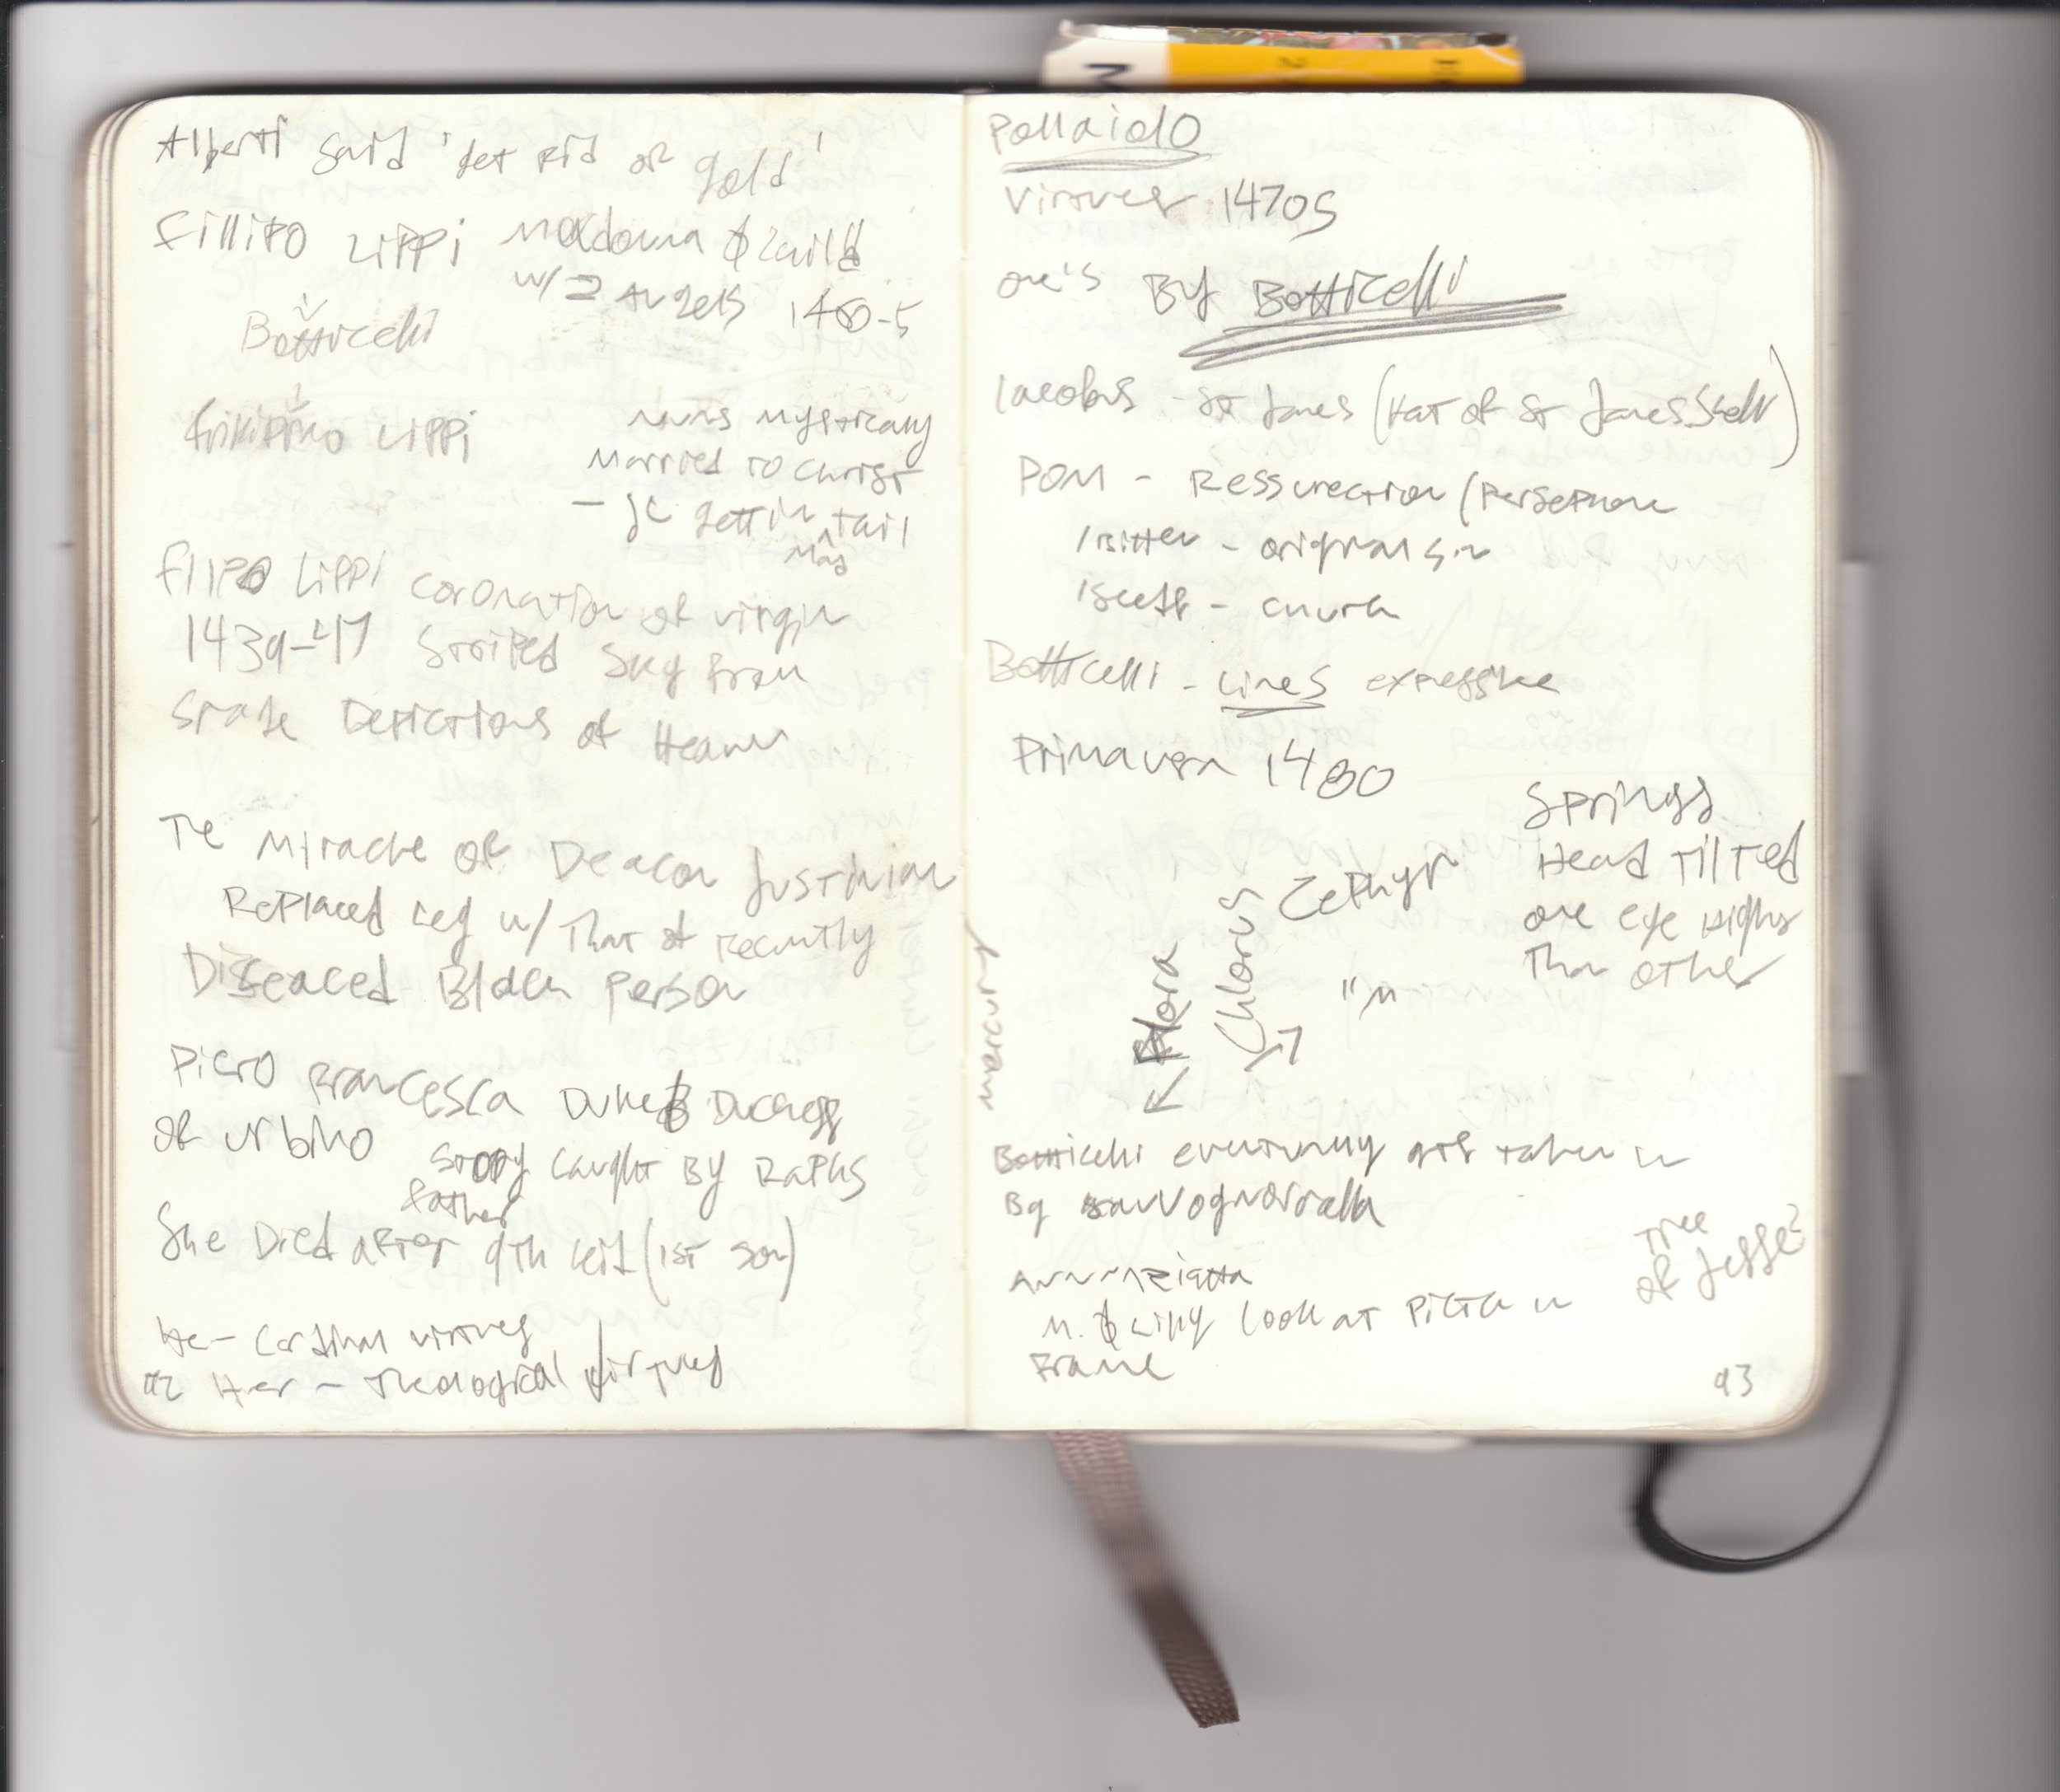 Alberti said 'get rid of gold'
Fillipo Lippi Madonna & Child
w/ 2 Angels 1460-5
Botticelli
Fillipino Lippi
nuns mystically
married to Christ
- JC gettin tail
mad
Filipo Lippi coronation of virgin
1439-47 striped sky from
Depictions of Heaven
Te Miracle of Deacon Justinian
Replaced leg w/ that of recently
Diseaced Black person
Piero Francesca Duke & Duchess
of Urbino
story caught by Raphs
father
She Died after 9th kid (1st son)
He - Cardinal virtues
92 Her - Theological Virtues
Pollaiolo
Virtues 1470s
one's By Botticelli
Iacobus - St James (Hat of St James Shell)
POM - Ressurection (Persephone
/ Bitter - original sin
/ seeds - church
Botticelli - Lines expressive
Primavera 1480
Springs
Head tilted
one eye higher
than other
Zephyr
Chlorus
Flora
mercury
"M
Botticelli eventually gets taken in
By
Annunziatta
M. & Lilly look at
Frame
Tree
of Jesse?
93